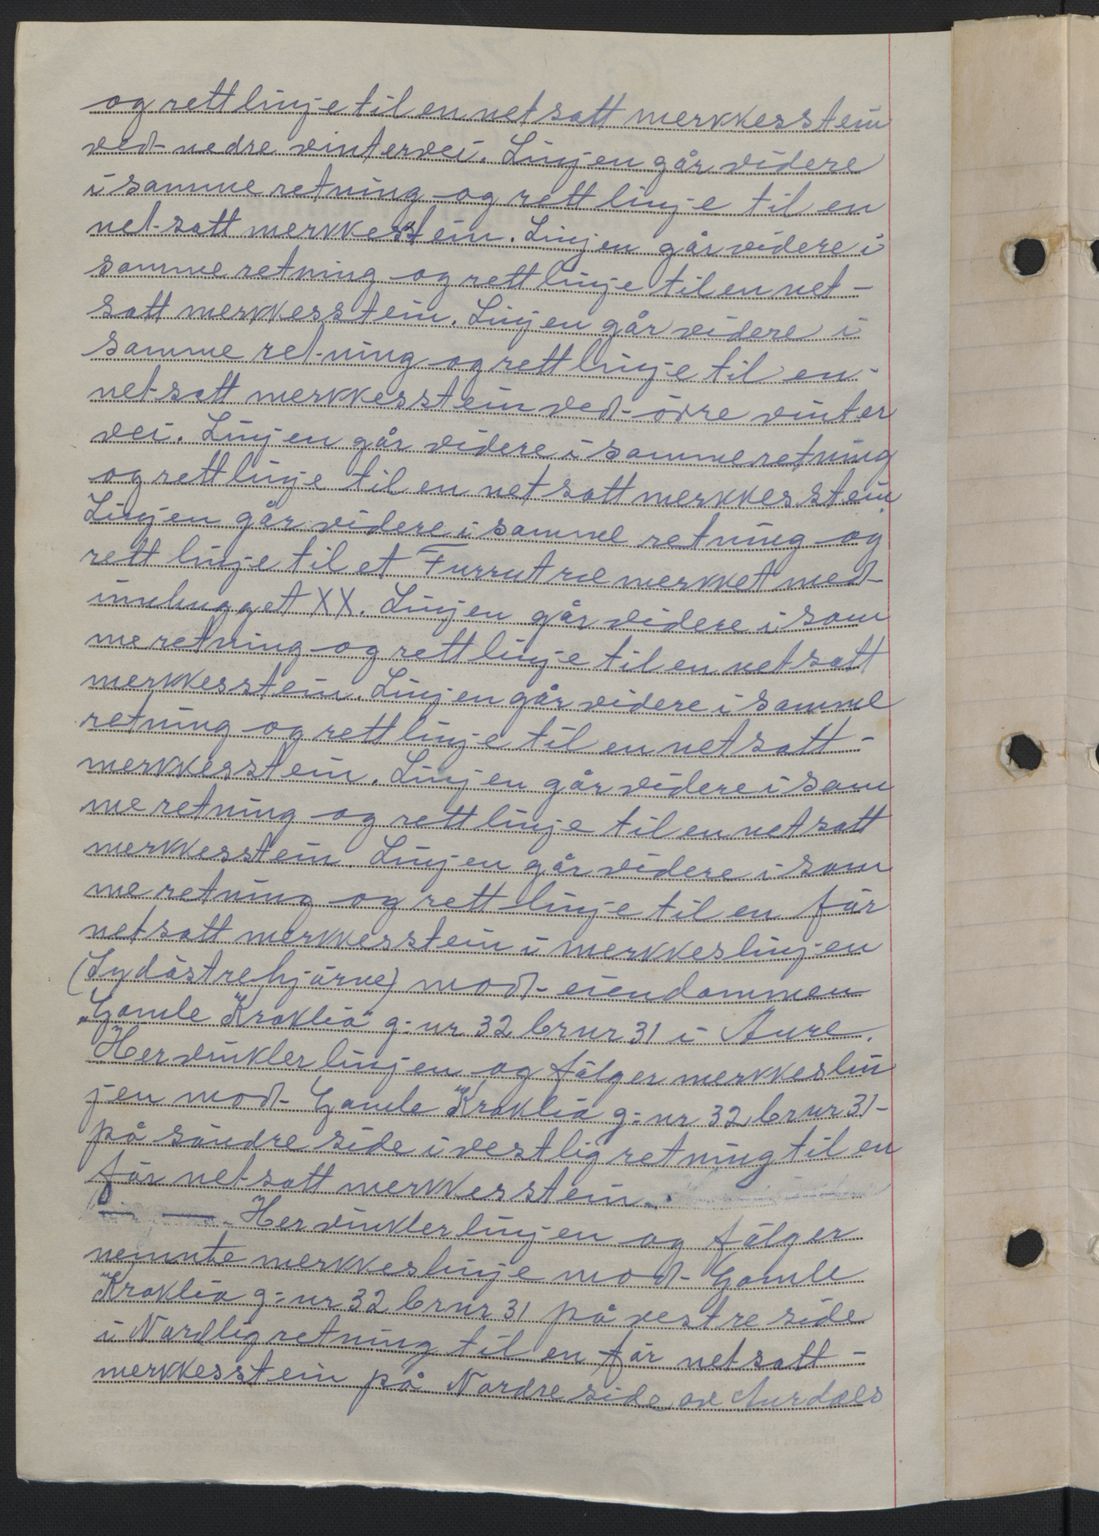 og rett linje til en netsatt merkkesstein
ved nedre vintervei. Linjen går videre
i samme retning og rett linje til en
netsatt merkkesstein. Linjen går videre i
samme retning og rett linje til en net-
satt merkkesstein. Linjen går videre i
samme retning og rett linje til en
netsatt merkkesstein ved övre vinter
vei. Linjen går videre i samme retning
og rett linje til en netsatt merkkesstein
Linjen går videre i samme retning og
rett linje til et Furrutree merkket med
innhugget XX. Linjen går videre i sam
me retning og rett linje til en netsatt
merkkesstein. Linjen går videre i samme
retning og rett linje til en netsatt-
merkkesstein. Linjen går videre i sam
me retning og rett linje til en netsatt
merkkesstein. Linjen går videre i sam
me retning og rett linje til en för
netsatt merkkesstein i merkkeslinjen
(Sydöstrehjörne) mod eiendommen
"Gamle Kraklia" g:nr 32 brnr 31 i Aure.
Her vinkler linjen og fölger merkkeslin
jen mod Gamle Kraklia g:nr 32 brnr 31-
på söndre side i vestlig retning til en
för netsatt merkkesstein.
Her vinkler linjen og fölger
nemnte merkkeslinje mod Gamle
Kraklia g:nr 32 brnr 31 på vestre side
i Nordlig retning til en för netsatt-
merkkesstein på Nordre side av Aurdals